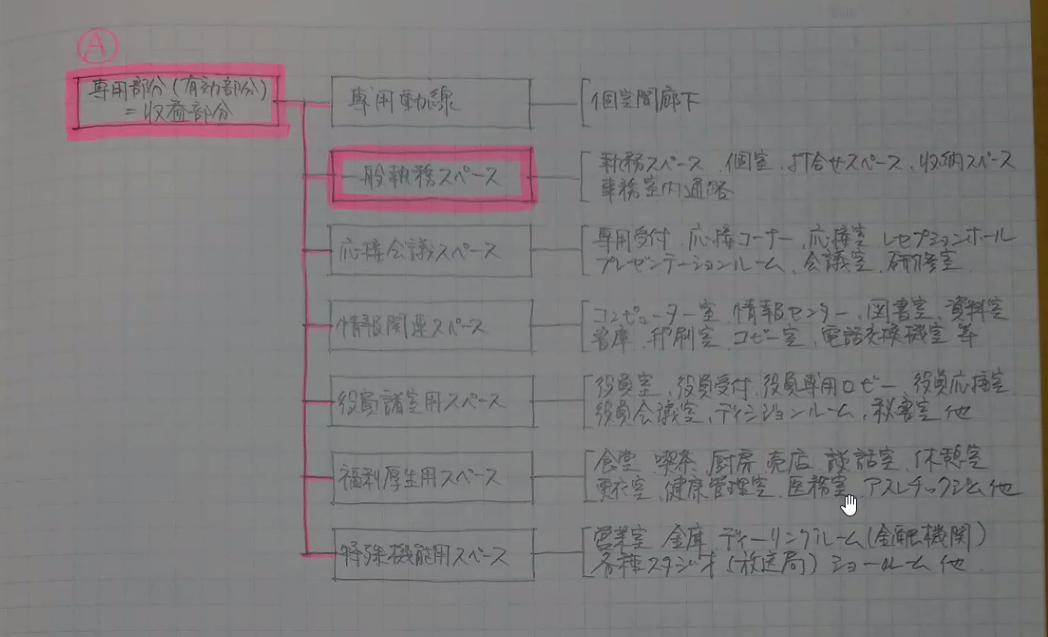 A
専用部分(有効部分)
=収益部分
専用動線
個室間廊下
一般執務スペース
執務スペース、個室、打合せスペース、収納スペース
事務室内通路
応接会議スペース
専用受付、応接コーナー、応接室、レセプションホール
プレゼンテーションルーム、会議室、研修室
情報関連スペース
コンピューター室、情報センター、図書室、資料室
書庫、印刷室、コピー室、電話交換機室 等
役員諸室用スペース
役員室、役員受付、役員専用ロビー、役員応接室
役員会議室、ディシジョンルーム、秘書室 他
福利厚生用スペース
食堂 喫茶 厨房 売店 談話室、休憩室
更衣室、健康管理室、医務室、アスレチックジム他
特殊機能用スペース
営業室 金庫 ディーリングルーム(金融機関)
各種スタジオ(放送局) ショールーム 他